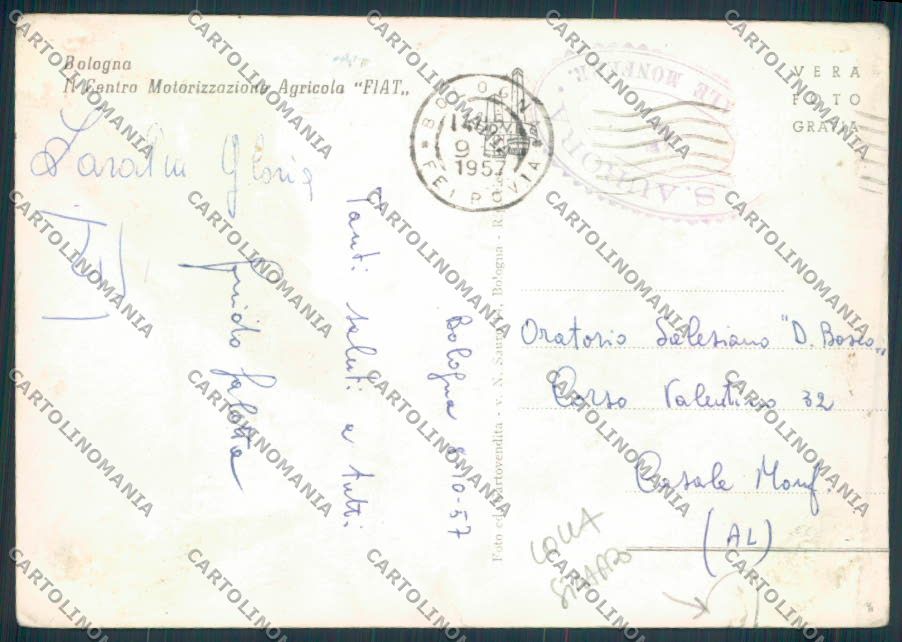 Bologna
Il Centro Motorizzazione Agricola "FIAT„
VERA
FOTO
GRAFIA
BOLOGNA
1957
FERROVIA
S. AURORA
Gloria
Guido
Tanti saluti a tutti
Bologna 9-10-57
Foto ed. Cartovendita - v. N. Sauro, Bologna
Oratorio Salesiano "D. Bosco„
Corso Valentino 32
Casale Monf.
(AL)
COLLA
STRAPPO
CARTOLINOMANIA